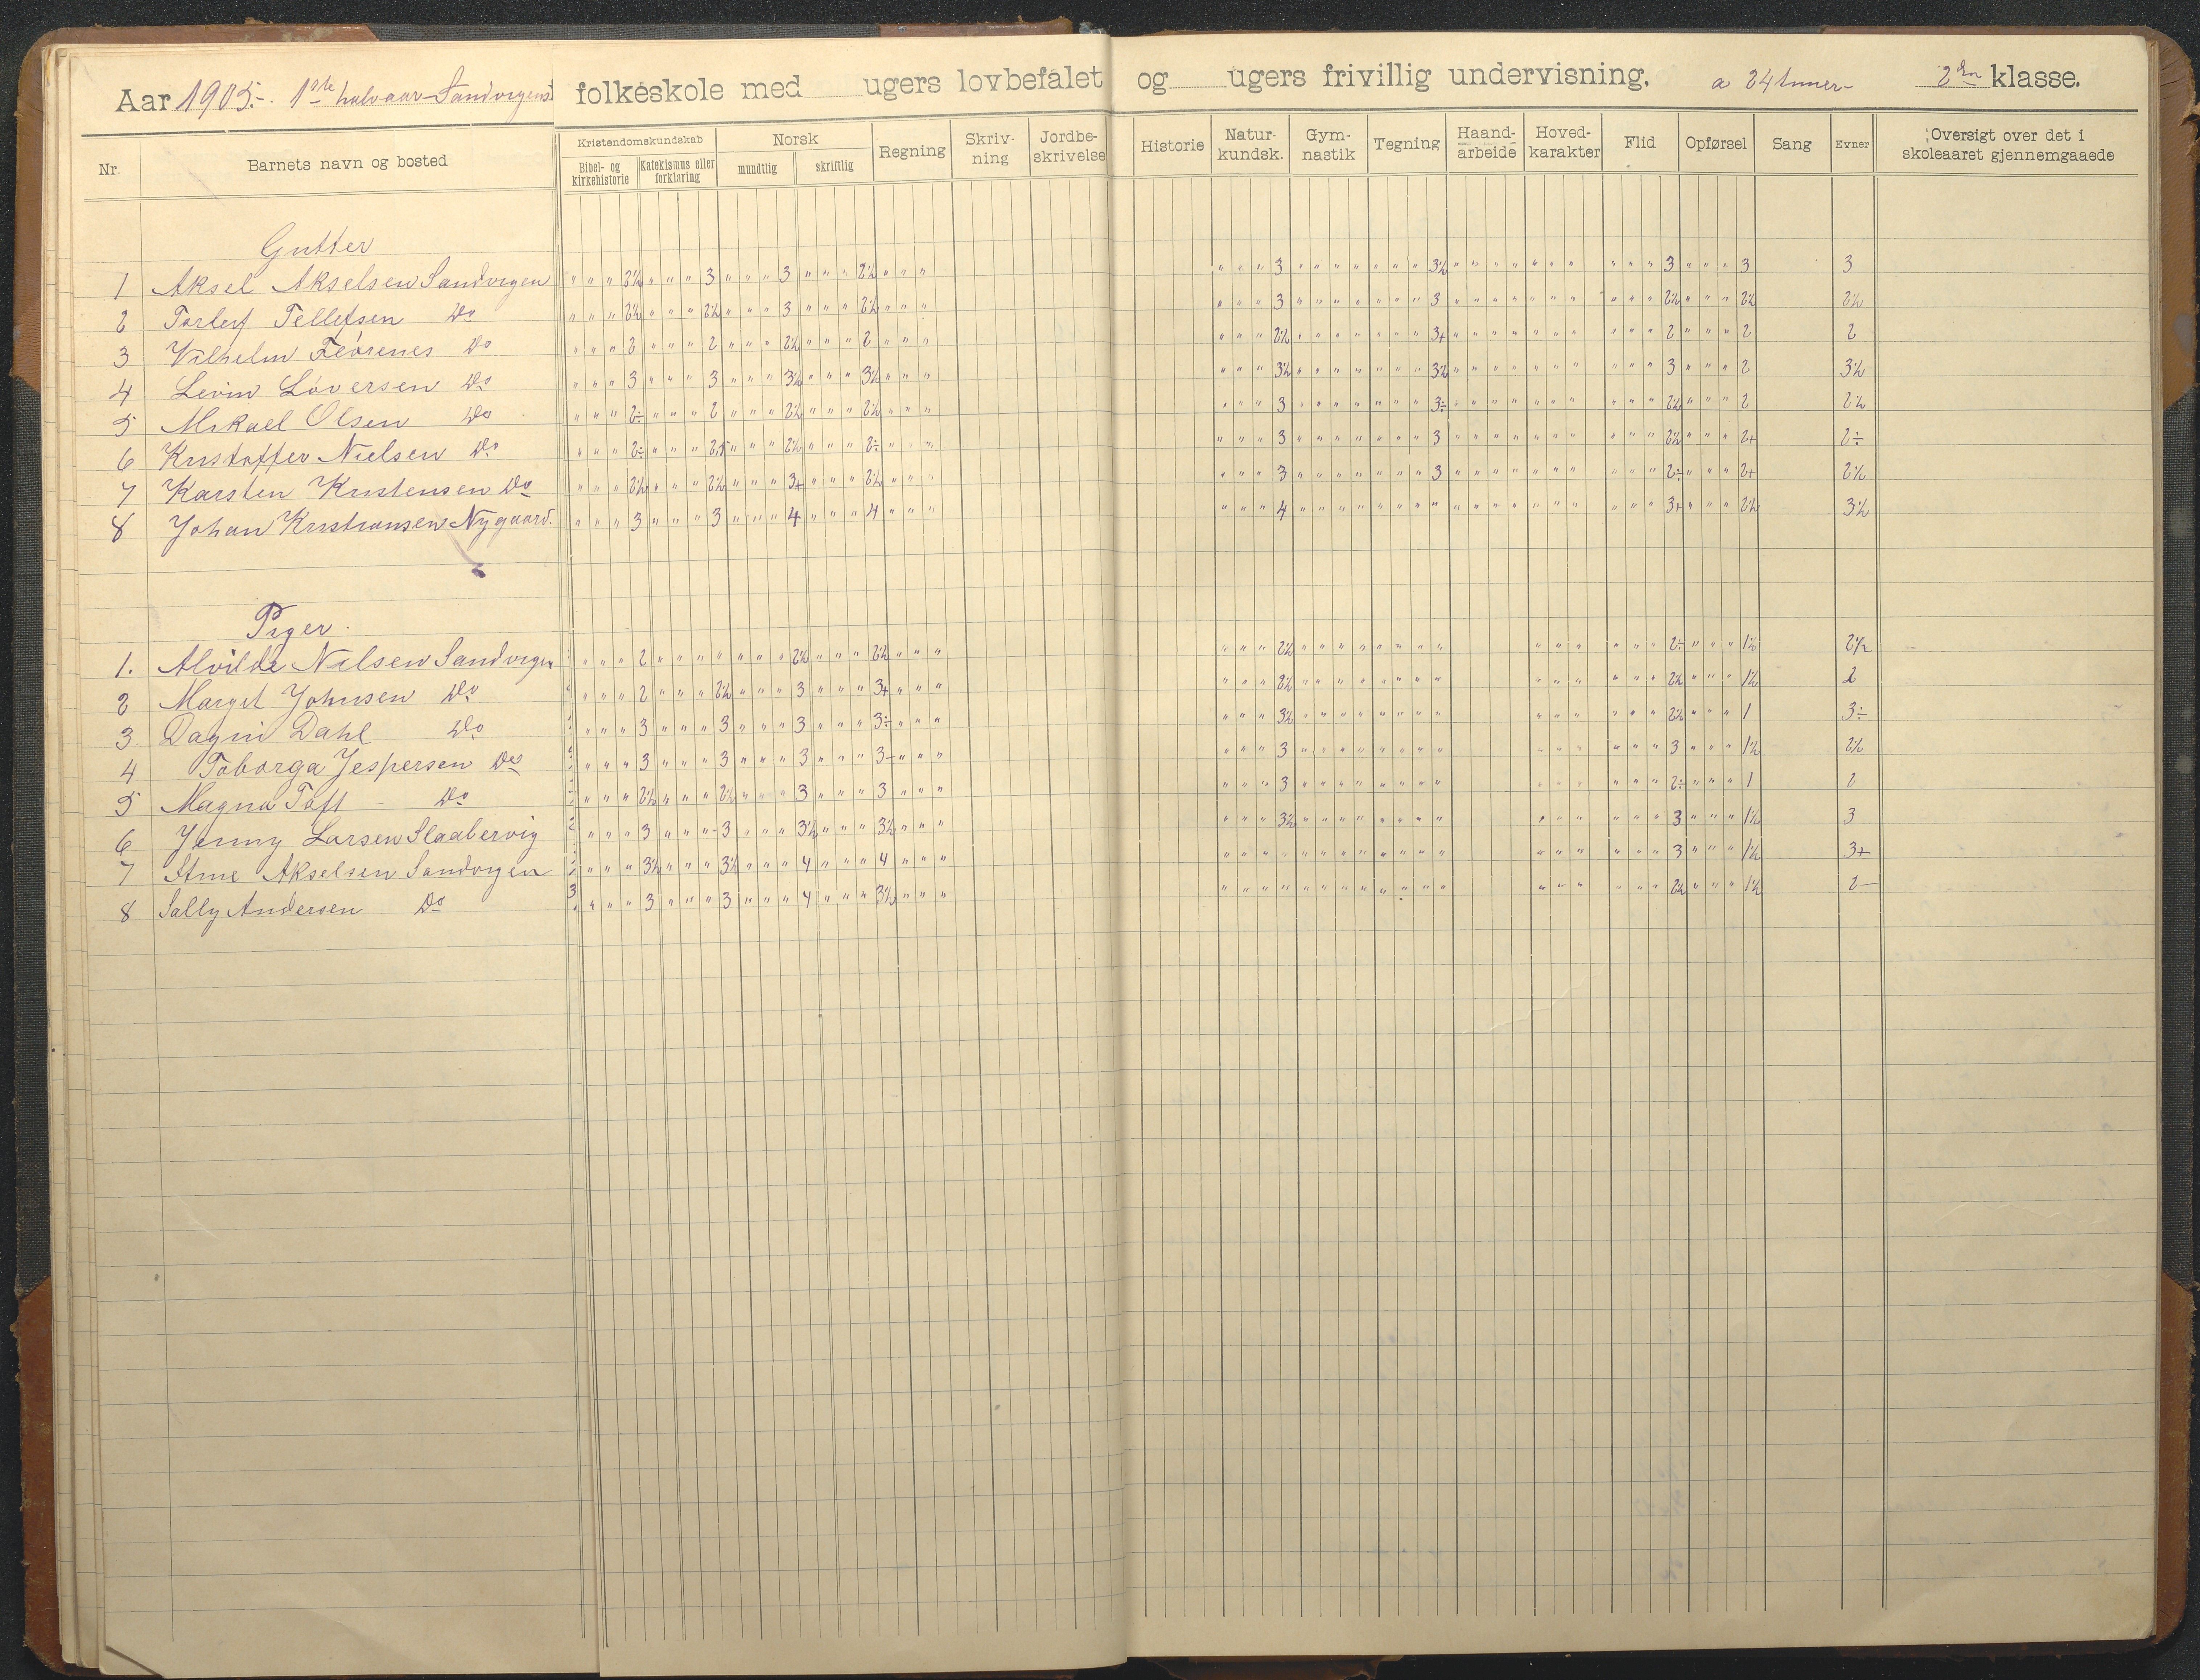 Aar 1905.- 1ste halvaar Sandvigens folkeskole med ugers lovbefalet og ugers frivillig undervisning. a 24 timer- 2den klasse.
Nr. Barnets navn og bosted Kristendomskundskab Norsk Regning Skriv-ning Jordbe-skrivelse Historie Natur-kundsk. Gym-nastik Tegning Haand-arbeide Hoved-karakter Flid Opførsel Sang Evner Oversigt over det i skoleaaret gjennemgaaede
Bibel- og kirkehistorie Katekismus eller forklaring mundtlig skriftlig
Gutter
1 Aksel Akselsen Sandvigen " " " 2½ " " " 3 " " " 3 " " " 2½ " " " " " " 3 " " " " " " " 3½ " " " " " " " " " " 3 " " " 3 3
2 Torleif Tellefsen Do " " " 2½ " " " 2½ " " " 3 " " " 2½ " " " " " " 3 " " " " " " " 3 " " " " " " " " " " 2½ " " " 2½ 2½
3 Vilhelm Do " " " 2 " " " 2 " " " 2½ " " " 2 " " " " " " 2½ " " " " " " " 3+ " " " " " " " " " " 2 " " " 2 2
4 Levin Løversen Do " " " 3 " " " 3 " " " 3½ " " " 3½ " " " " " " 3½ " " " " " " " 3½ " " " " " " " " " " 3 " " " 2 3½
5 Mikael Olsen Do " " " 2÷ " " " 2 " " " 2½ " " " 2½ " " " " " " 3 " " " " " " " 3÷ " " " " " " " " " " 2½ " " " 2 2½
6 Kristoffer Nielsen Do " " " 2÷ " " " 2,5 " " " 2½ " " " 2÷ " " " " " " 3 " " " " " " " 3 " " " " " " " " " " 2½ " " " 2+ 2÷
7 Karsten Kristensen Do " " " 2½ " " " 2½ " " " 3+ " " " 2½ " " " " " " 3 " " " " " " " 3 " " " " " " " " " " 2÷ " " " 2+ 2½
8 Johan Kristiansen Nygaard. " " " 3 " " " 3 " " " 4 " " " 4 " " " " " " 4 " " " " " " " " " " " " " " " " " " 3+ " " " 2½ 3½
Piger.
1. Alvilde Nilsen Sandvigen " " " 2 " " " " " " " 2½ " " " 2½ " " " " " " 2½ " " " " " " " " " " " " " " 2÷ " " " 1½ 2½
2 Margit Johnsen Do " " " 2 " " " 2½ " " " 3 " " " 3+ " " " " " " 2½ " " " " " " " " " " " " " " 2½ " " " 1½ 2
3. Dagni Dahl Do " " " 3 " " " 3 " " " 3 " " " 3÷ " " " " " " 3½ " " " " " " " " " " " " " " 2½ " " " 1 3÷
4 Toborga Jespersen Do " " " 3 " " " 3 " " " 3 " " " 3- " " " " " " 3 " " " " " " " " " " " " " " 3 " " " 1½ 2½
5 Magna Toft Do " " " 2½ " " " 2½ " " " 3 " " " 3 " " " " " " 3 " " " " " " " " " " " " " " 2÷ " " " 1 2
6 Jenny Larsen Slaabervig " " " 3 " " " 3 " " " 3½ " " " 3½ " " " " " " 3½ " " " " " " " " " " " " " " 3 " " " 1½ 3
7 Akselsen Sandvigen " " " 3½ " " " 3½ " " " 4 " " " 4 " " " " " " " " " " " " " " " " " " " " " 3 " " " 1½ 3+
8 Sally Andersen Do " " " 3 " " " 3 " " " 4 " " " 3½ " " " " " " " " " " " " " " " " " " " " " 2½ " " " 1½ 2-